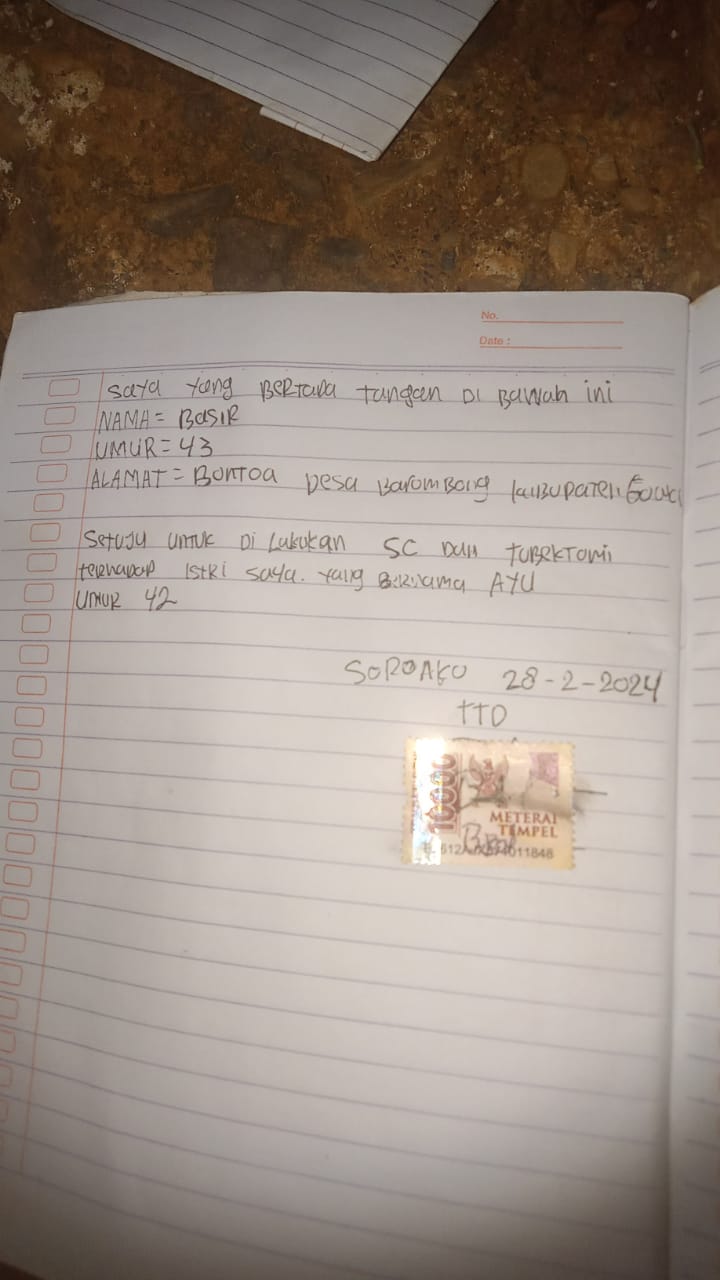 No.
Date :
saya yang BERTADA tangan DI BAWAH ini
NAMA = BASIR
UMUR = 43
ALAMAT = BONTOA Desa Barombong KABUPATEN GOWA
Setuju UNTUK Di Lakukan SC DAN TUBEKTOMI
terhadap Istri saya. yang Bernama AYU
UMUR 42
SOROAKO 28-2-2024
TTD
10000
METERAI
TEMPEL